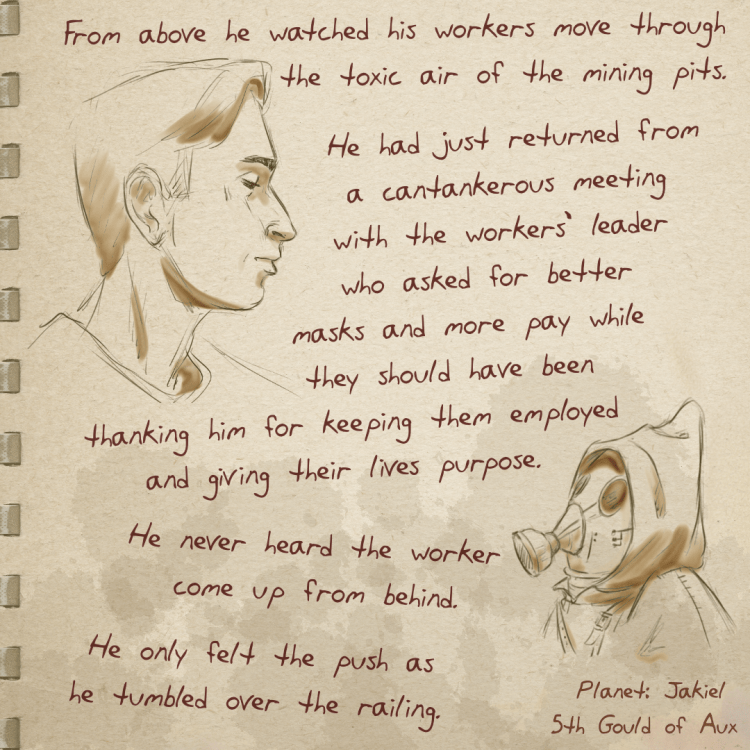 From above he watched his workers move through
the toxic air of the mining pits.
He had just returned from
a cantankerous meeting
with the workers' leader
who asked for better
masks and more pay while
they should have been
thanking him for keeping them employed
and giving their lives purpose.
He never heard the worker
come up from behind.
He only felt the push as
he tumbled over the railing.
Planet: Jakiel
5th Gould of Aux